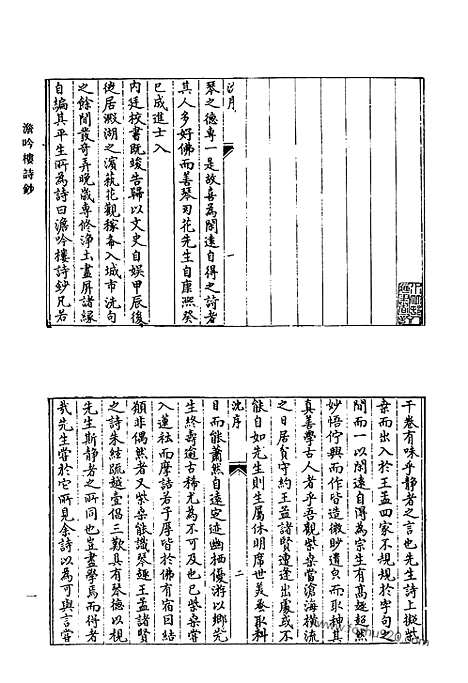 澹吟樓詩鈔
沈序
一
琴之德專一是故喜為閒遠自得之詩者
其人多好佛而善琴刃花先生自康熙癸
巳成進士入
內廷校書既竣告歸以文史自娛甲辰後
徙居澱湖之濱蓺花觀稼毒入城市洗句
之餘間發奇弄晚歲專修淨土盡屏諸緣
自編其平生所為詩曰澹吟樓詩鈔凡若
干卷有味乎靜者之言也先生詩上擬柴
桑而出入於王孟四家不規規於字句之
間而一以閒遠自得為宗生有高趣超然
妙悟佇興而作皆造微眇遺貌而取神其
真善學古人者乎吾觀柴桑當滄海橫流
之日居貧守約王孟諸賢遭逢出處或不
能自如先生則生屬休明席世美蚤取科
沈序
二
目而能蕭然自遠定迹幽栖優游以鄉先
生終壽逾古稀尤為不可及也已柴桑嘗
入蓮社而摩詰若子厚皆於佛有宿因結
額非偶然者又柴桑能識琴趣王孟諸賢
之詩朱絃疏越壹倡三歎具有琴德以視
先生斯靜者之所同也豈盡學焉而得者
哉先生嘗於它所見余詩以為可與言嘗
一
www.fomus920.com